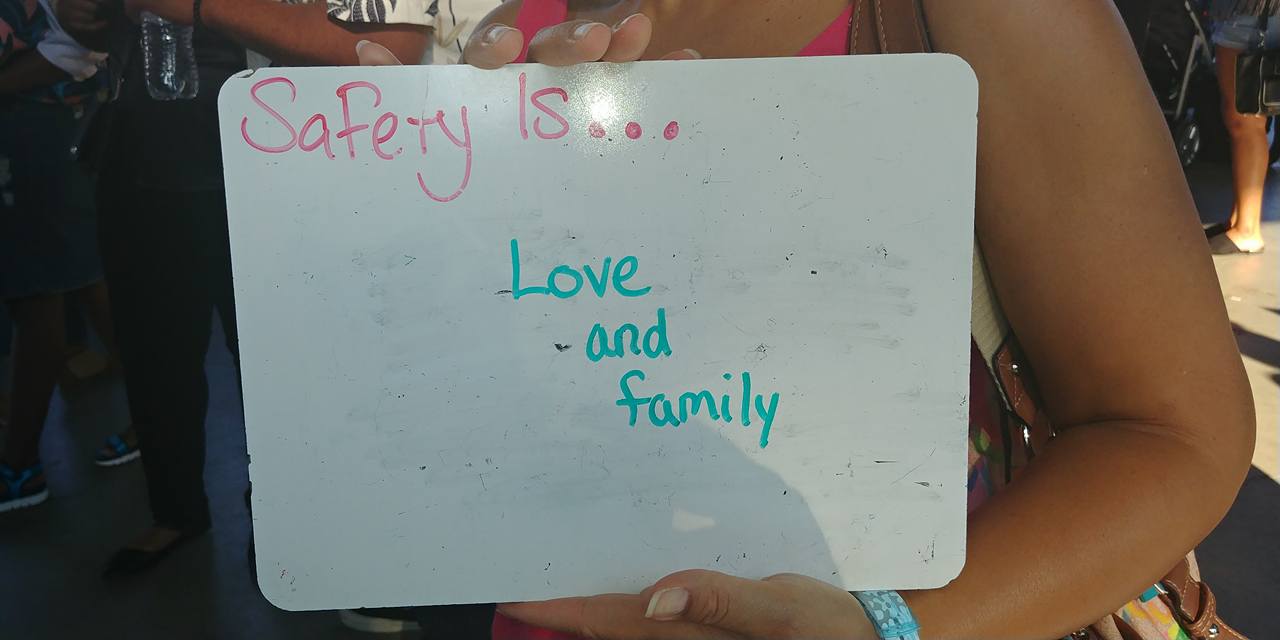 Safety Is...
Love
and
family